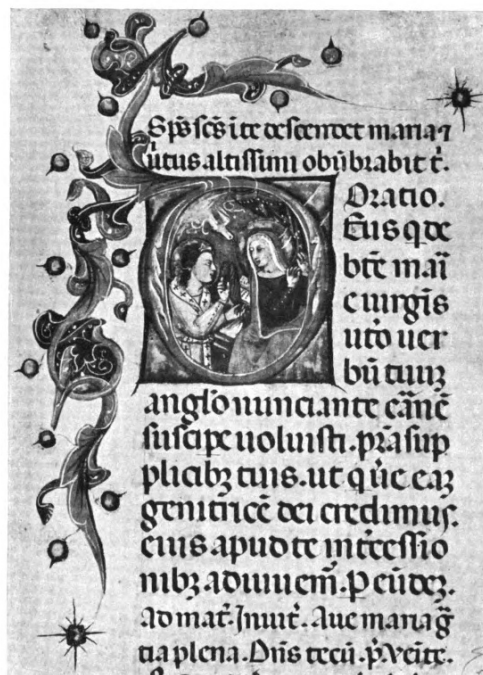 Sps scs i te descendet maria ⁊
uirtus altissimi obubrabit t.
Oratio.
Eus q de
bte mari
e uirgis
uto uer
bu tuuz
anglo nunciante carne
suscipe uoluisti. pra sup
plicibz tuis. ut qui eaz
genitrice dei credimus.
eius apud te intcessio
nibz adiuuem. P eudez.
ad mat. Inuit. Aue maria g
tia plena. Dns tecu. p. Veite.